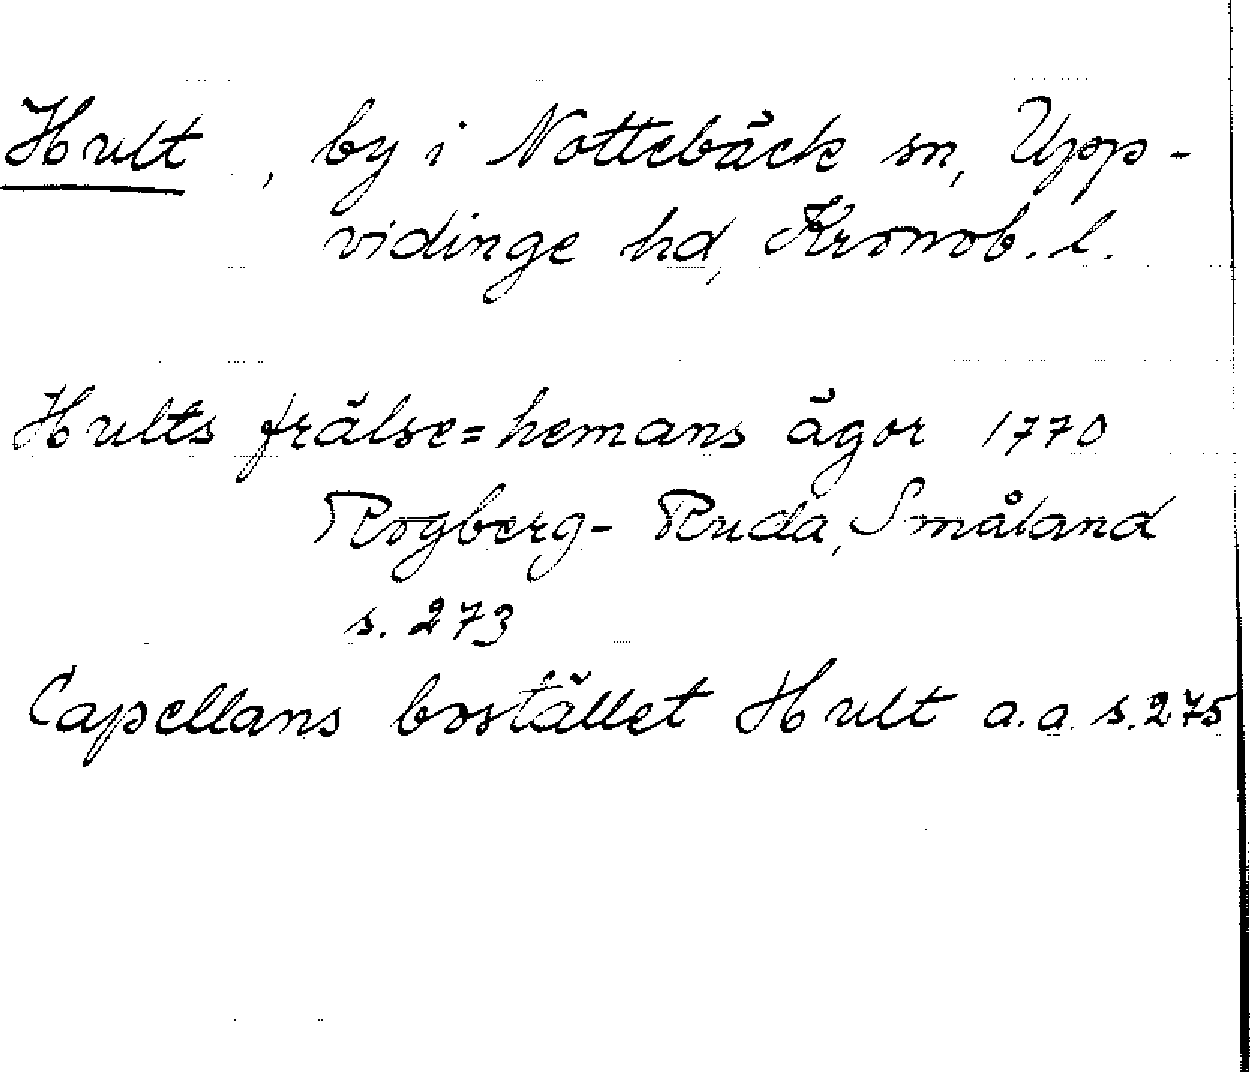 Hult, by i Nottebäck sn, Upp-
vidinge hd, Kronob. l.
Hults frälse=hemans ägor 1770
Rogberg-Ruda, Småland
s. 273
Capellans bostället Hult a.a. s.275